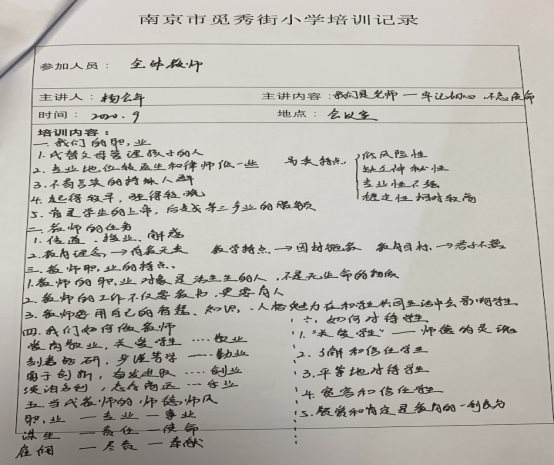 南京市觅秀街小学培训记录
参加人员： 全体教师
主讲人： 杨会年 主讲内容：我们是老师 — 牢记初心，不忘使命
时间： 2020.9 地点： 会议室
培训内容：
一.我们的职业
1.代替父母管理孩子的人
2.专业地位较医生和律师低一些 与其特点
3.不高言的特殊人群
4.起得较早，睡得较晚
5.肯是学生的上帝，后是或第三产业的服务员
低风险性
缺乏神秘性
专业性不强
稳定性相对较高
二.教师的任务
1.传道、授业、解惑
2.教育理念 → 有教无类 教学特点 → 因材施教 教育目标 → 君子不器
三.教师职业的特点.
1.教师的职业对象是活生生的人，不是无生命的物体
2.教师的工作不仅要教书，更要育人
3.教师要用自己的智慧、知识、人格魅力在和学生共同生活中去影响学生
四.我们如何做教师
爱岗敬业，关爱学生 ‥‥ 敬业
刻苦钻研，严谨笃学 ‥‥ 勤业
勇于创新，奋发进取 ‥‥ 创业
淡泊名利，志存高远 ‥‥ 乐业
五.当代教师的师德师风
职业 — 专业 — 事业
谋生 — 责任 — 使命
雇佣 — 尽责 — 奉献
六.如何对待学生
1."关爱学生" — 师德的灵魂
2.了解和信任学生
3.平等地对待学生
4.宽容和信任学生
5.赞赏和肯定是教育的一剂良方